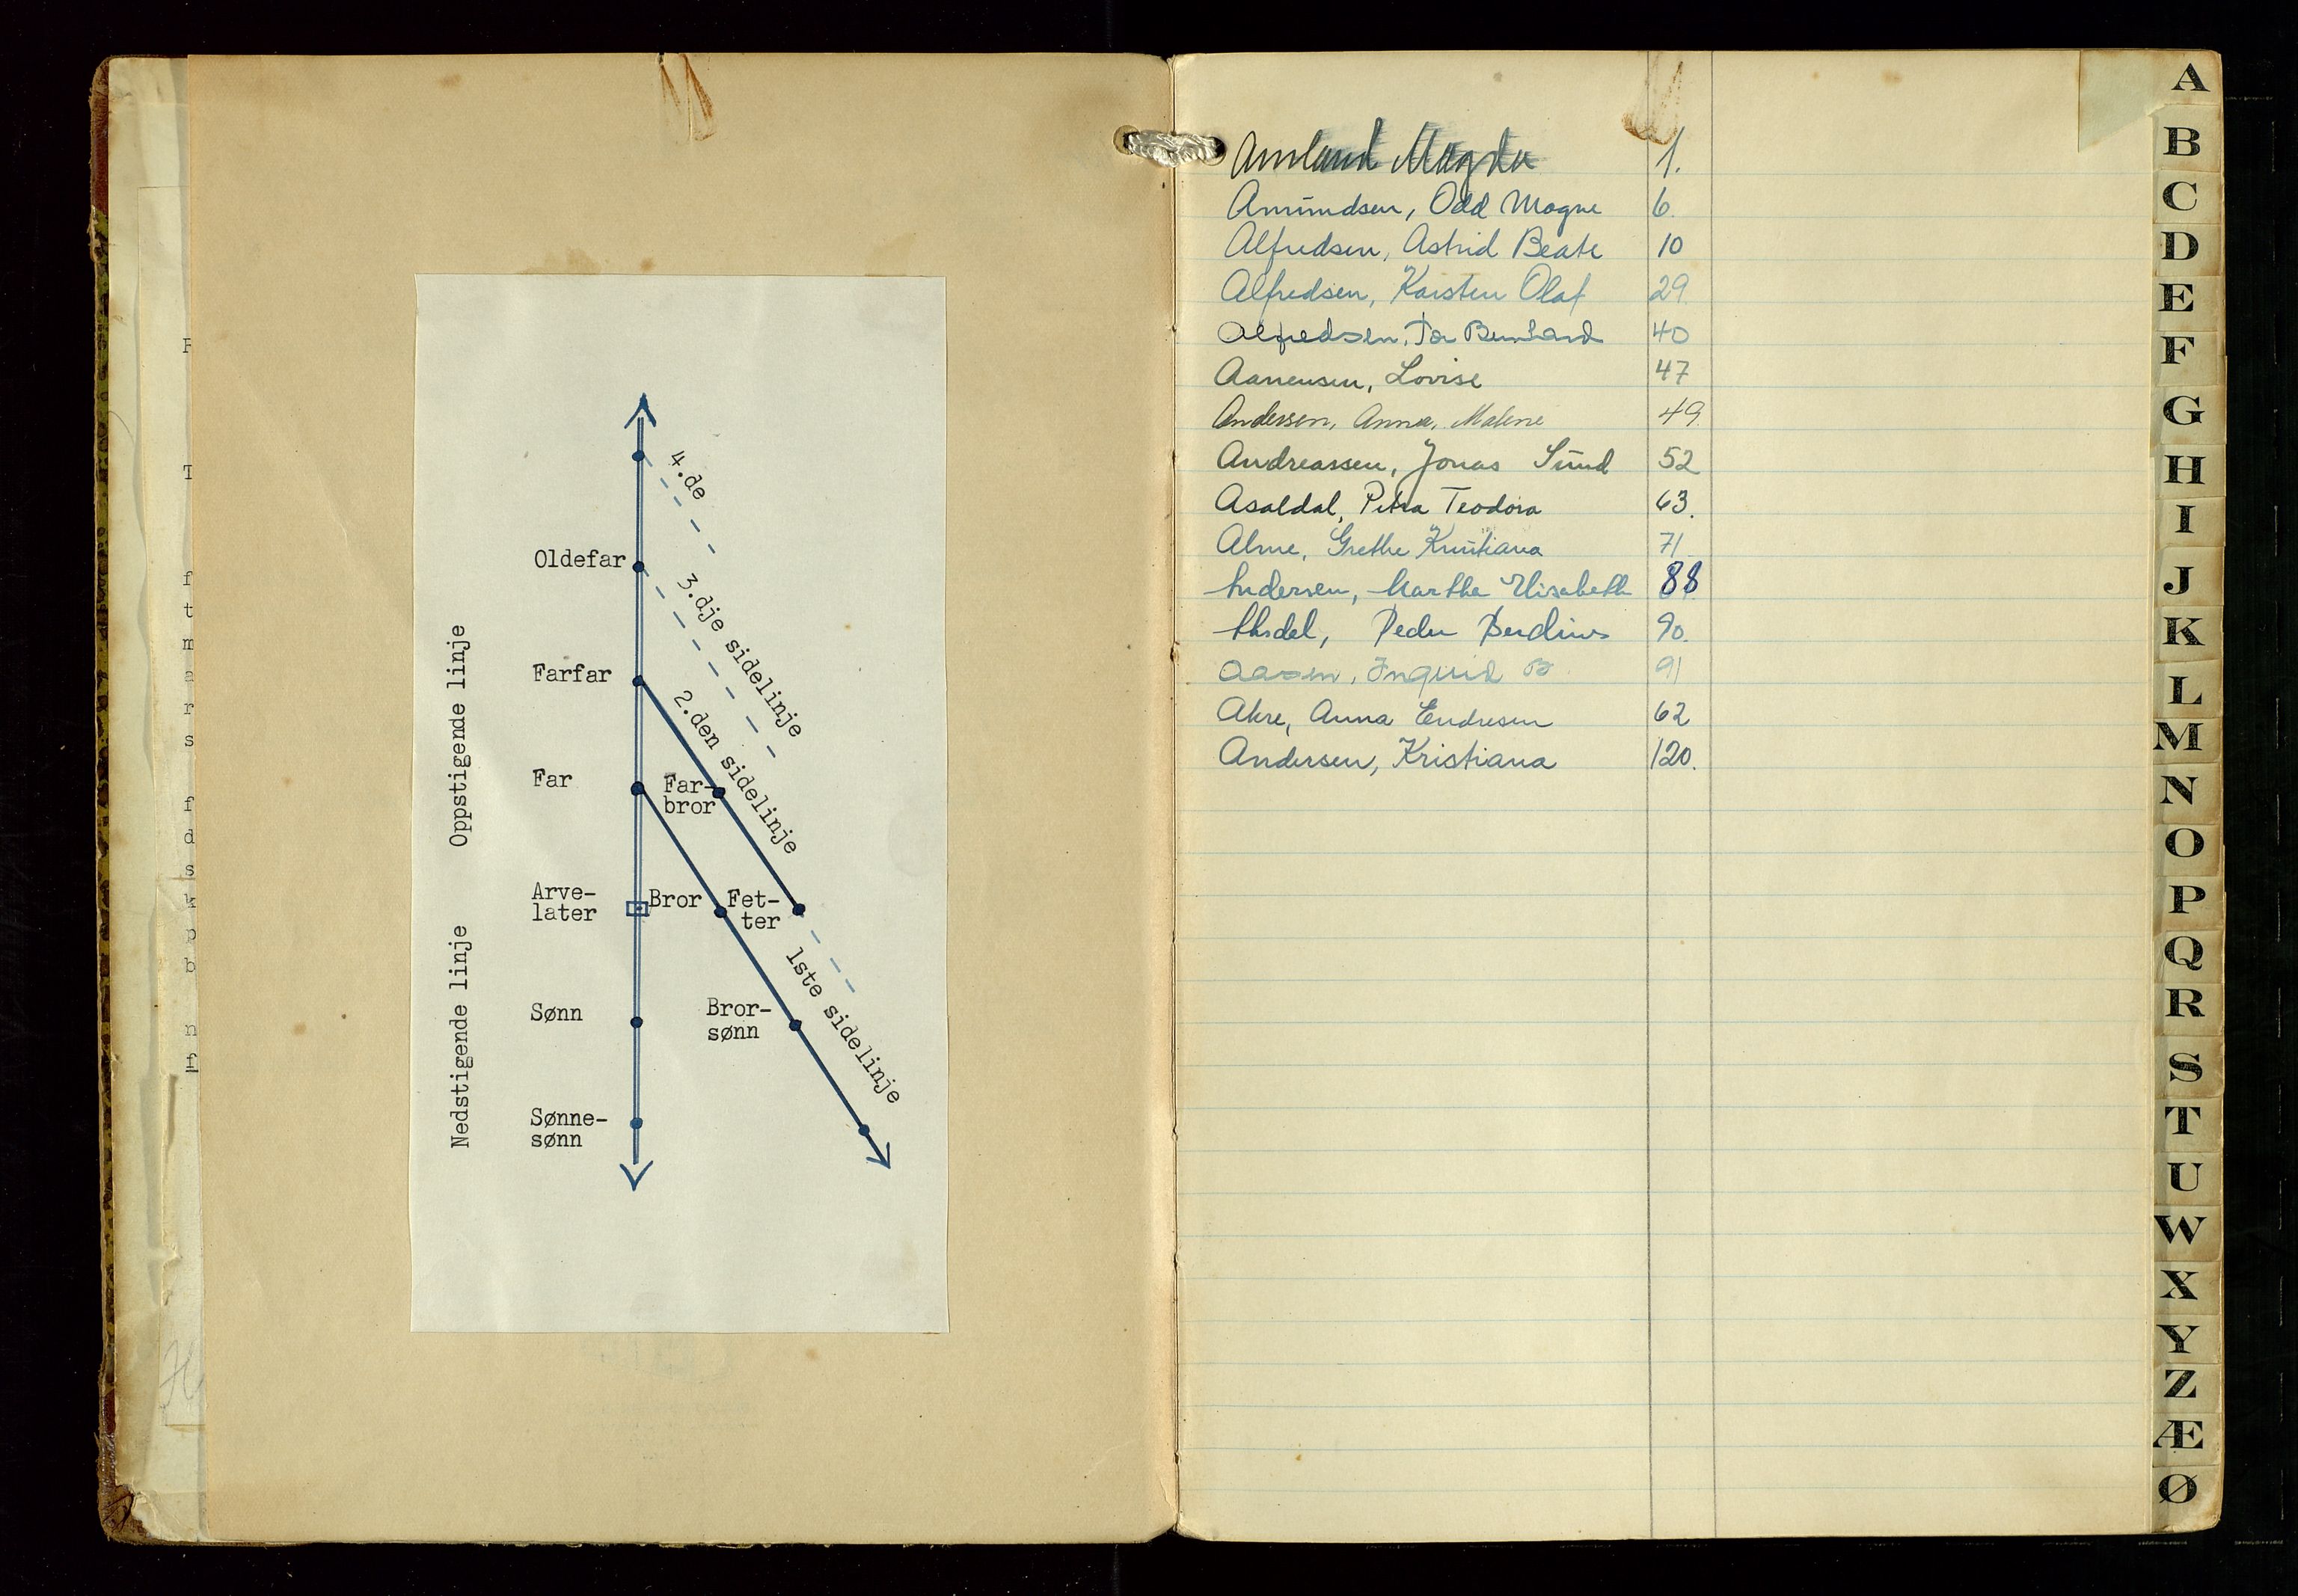 4.de
Oldefar
3.dje sidelinje
Farfar
2.den sidelinje
Far
Far-
bror
Arve-
later
Bror
Fet-
ter
1ste sidelinje
Sønn
Bror-
sønn
Sønne-
sønn
Oppstigende linje
Nedstigende linje
F
T
f
t
m
a
r
s
f
d
s
k
p
b
n
f
Amland Magda 1.
Amundsen, Odd Magne 6.
Alfredsen, Astrid Beate 10
Alfredsen, Karsten Olaf 29
Alfredsen, Tor Bernhard 40
Aanensen, Lovise 47
Andersen, Anna, Malene 49.
Andreassen, Jonas Sund 52
Asaldal, Petra Teodora 63.
Alme, Grethe Kristiana 71
Andersen, Marthe Elisabeth 88
Peder 90.
Aasen, Ingrid B 91
Akre, Anna Endresen 62
Andersen, Kristiana 120.
A
B
C
D
E
F
G
H
I
J
K
L
M
N
O
P
Q
R
S
T
U
W
X
Y
Z
Æ
Ø